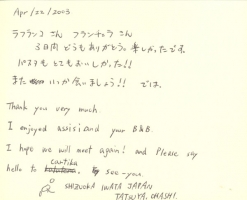 Apr/22/2003
ラフランコ さん フランチェラ さん
3日間 どうもありがとう。楽しかったです。
パスタも とてもおいしかった!!
また いつか会いましょう!! では。
Thank you very much.
I enjoyed assisi and your B&B.
I hope we will meet again! and Please say
hello to cartika. see-you.
SHIZUOKA IWATA JAPAN
TATSUYA. OHASHI.